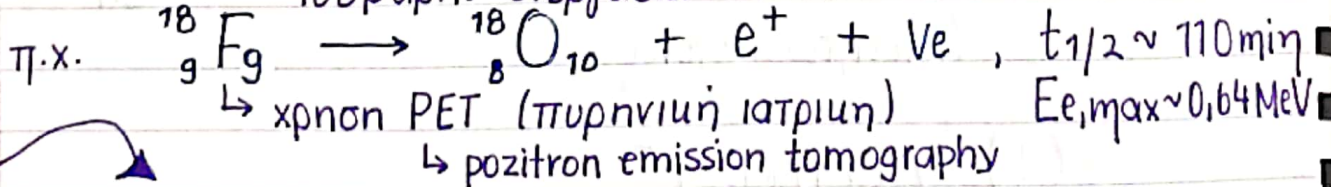 π.χ. ¹⁸₉F₉ ⟶ ¹⁸₈O₁₀ + e⁺ + νe , t1/2 ~ 110min
↳ χρηση PET (πυρηνική ιατρικη) Ee,max~0,64MeV
↳ pozitron emission tomography